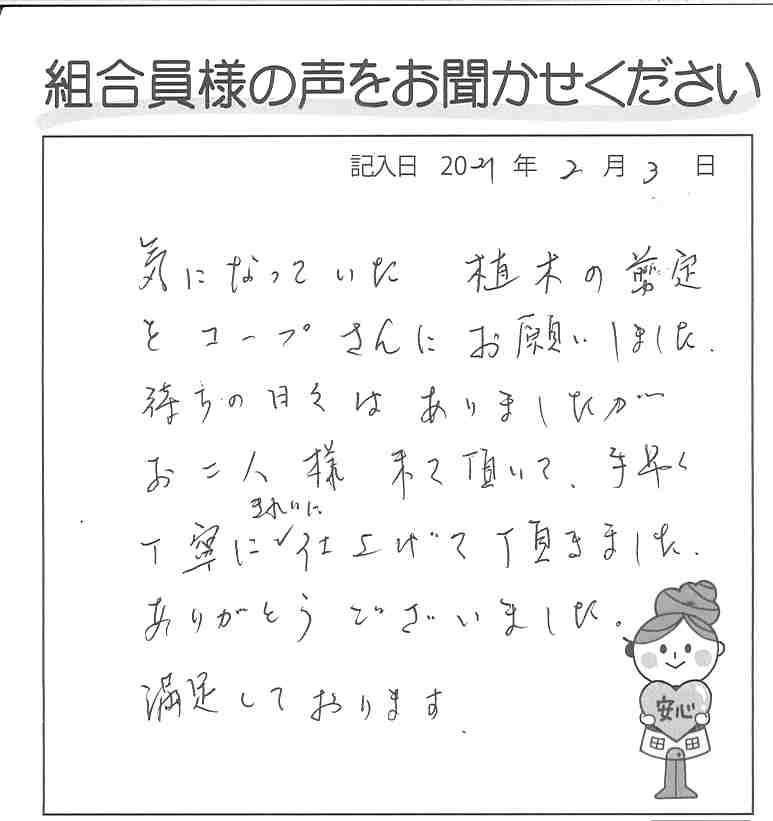 組合員様の声をお聞かせください
記入日 2021 年 2 月 3 日
気になっていた 植木の剪定
をコープさんにお願いしました.
待ちの日々はありましたが
お二人様来て頂いて、手早く
きれいに
丁寧に✓仕上げて頂きました.
ありがとうございました。
満足しております.
安心